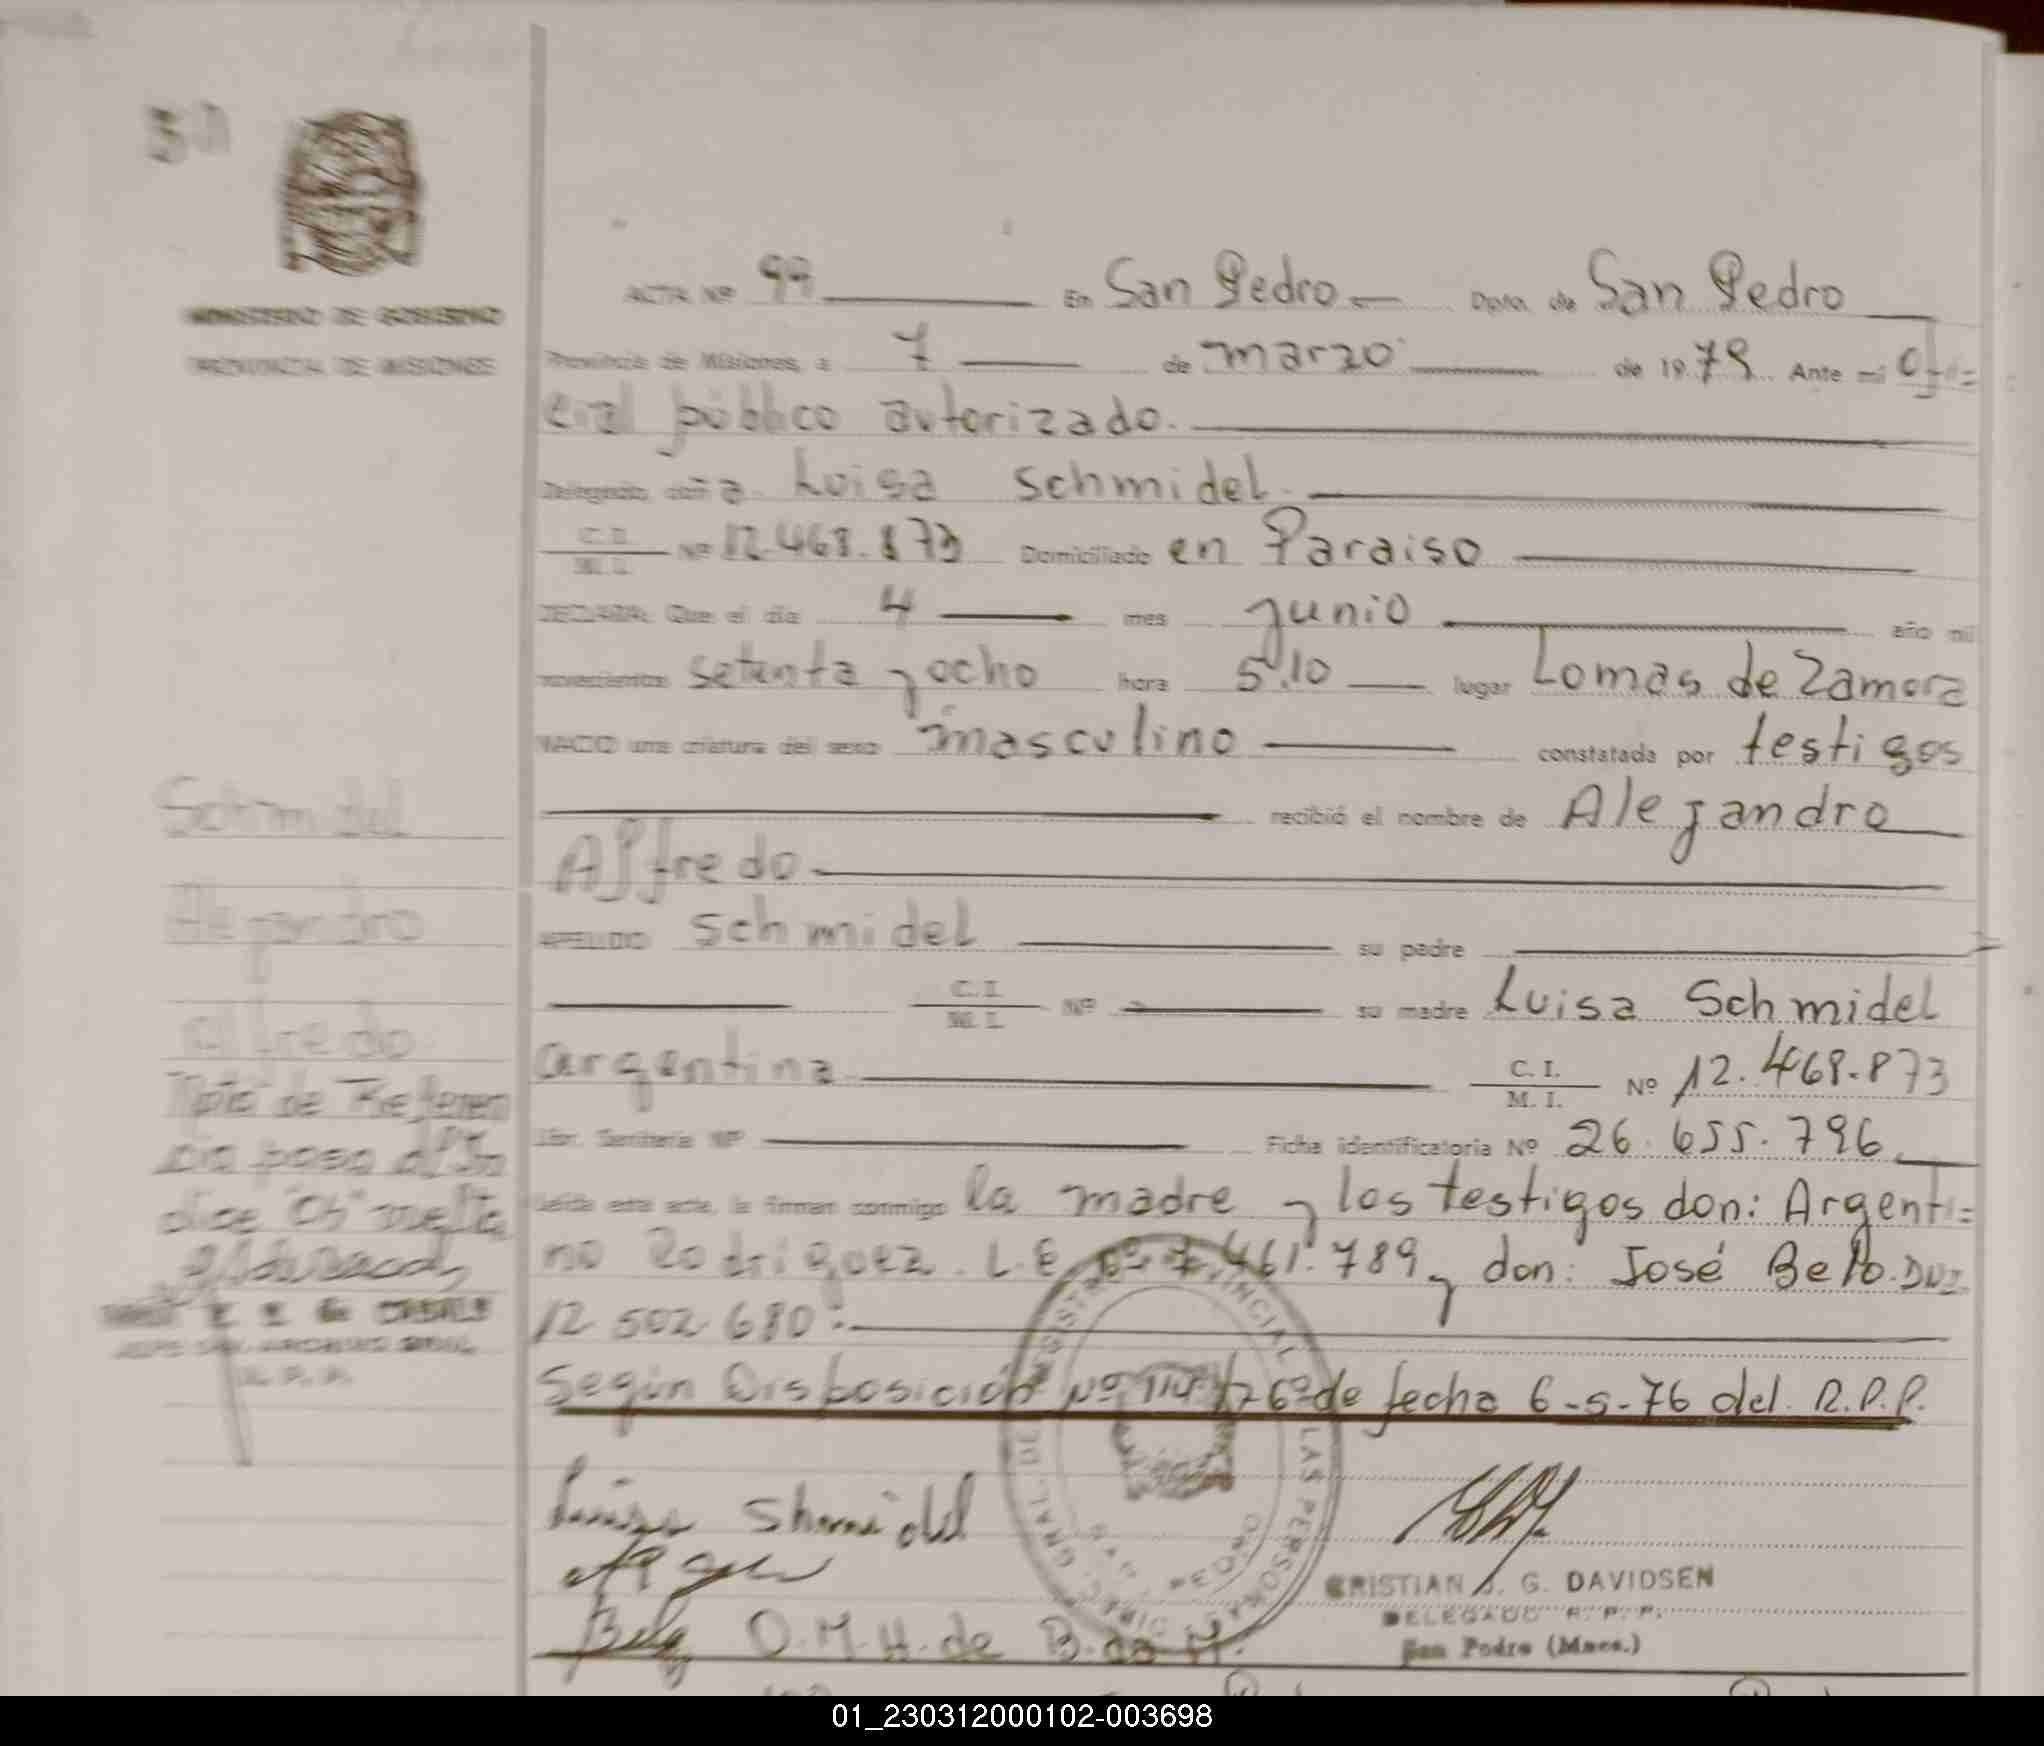 MINISTERIO DE GOBIERNO
PROVINCIA DE MISIONES
ACTA Nº 99 En San Pedro Dpto. de San Pedro
Provincia de Misiones, a 7 de marzo de 1979 Ante mi Ofi=
cial público autorizado.
Delegado doña Luisa Schmidel
C. I. / M. I. Nº 12.468.873 Domiciliado en Paraiso
DECLARA: Que el día 4 mes junio año mil
novecientos setenta y ocho hora 5.10 lugar Lomas de Zamora
NACIO una criatura del sexo masculino constatada por testigos
recibió el nombre de Alejandro
Alfredo
APELLIDO Schmidel su padre
C. I. / M. I. Nº su madre Luisa Schmidel
argentina C. I. / M. I. Nº 12.468.873
Libr. Sanitaria Nº Ficha identificatoria Nº 26.655.796
Leída esta acta, la firman conmigo la madre y los testigos don: Argenti=
no Rodriguez L.E. nº 7.461.789 y don: José Belo. DNI.
12 502 680:
Según Disposición Nº /76 de fecha 6-5-76 del R.P.P.
Luisa Shmidel
O.M.H. de B. de M.
CRISTIAN J. G. DAVIDSEN
DELEGADO R. P. P.
San Pedro (Mnes.)
Schmidel
Alejandro
Alfredo
Nota de Referen
cia pasa al In
dice "Ch" vuelta
R. P. P.
01_230312000102-003698